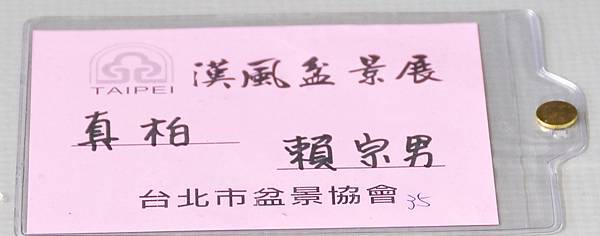 漢風盆景展
TAIPEI
真柏 賴宗男
台北市盆景協會 35